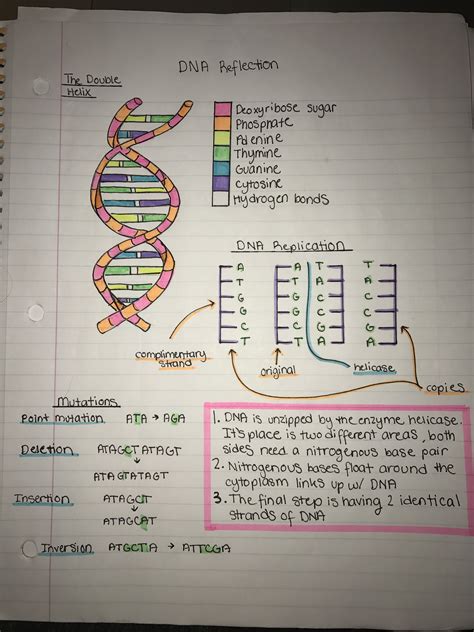 DNA Reflection
The Double
Helix
Deoxyribose sugar
Phosphate
Adenine
Thymine
Guanine
Cytosine
Hydrogen bonds
DNA Replication
A A T T
T T A A
G G C C
G G C C
C C G G
T T A A
complimentary
strand
original
helicase
copies
Mutations
Point mutation ATA → AGA
Deletion ATAGCTATAGT
ATAGTATAGT
Insertion ATAGCT
ATAGCAT
Inversion ATGCTTA → ATTCGA
1. DNA is unzipped by the enzyme helicase.
It's place is two different areas, both
sides need a nitrogenous base pair
2. Nitrogenous bases float around the
cytoplasm links up w/ DNA
3. The final step is having 2 identical
strands of DNA